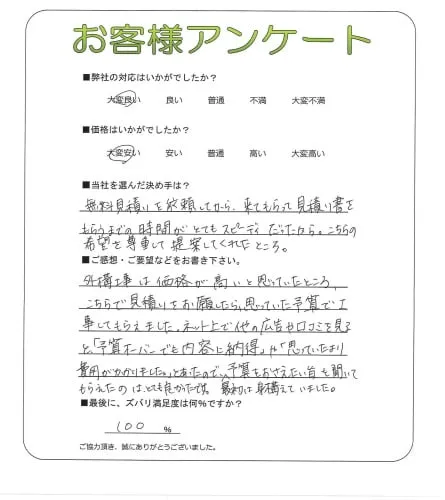 お客様アンケート
■弊社の対応はいかがでしたか？
大変良い 良い 普通 不満 大変不満
■価格はいかがでしたか？
大変安い 安い 普通 高い 大変高い
■当社を選んだ決め手は？
無料見積りを依頼してから、来てもらって見積り書を
もらうまでの時間がとてもスピーディだったから。こちらの
希望を尊重して提案してくれたところ。
■ご感想・ご要望などをお書き下さい。
外構工事は価格が高いと思っていたところ、
こちらで見積りをお願いしたら、思っていた予算で工
事してもらえました。ネット上で他の広告や口コミを見る
と、「予算オーバーでも内容に納得」や「思っていたより
費用がかかりました。」とあったので、予算をおさえたい旨を聞いて
もらえたのはとても良かったです。最初は身構えていました。
■最後に、ズバリ満足度は何％ですか？
100 %
ご協力頂き、誠にありがとうございました。